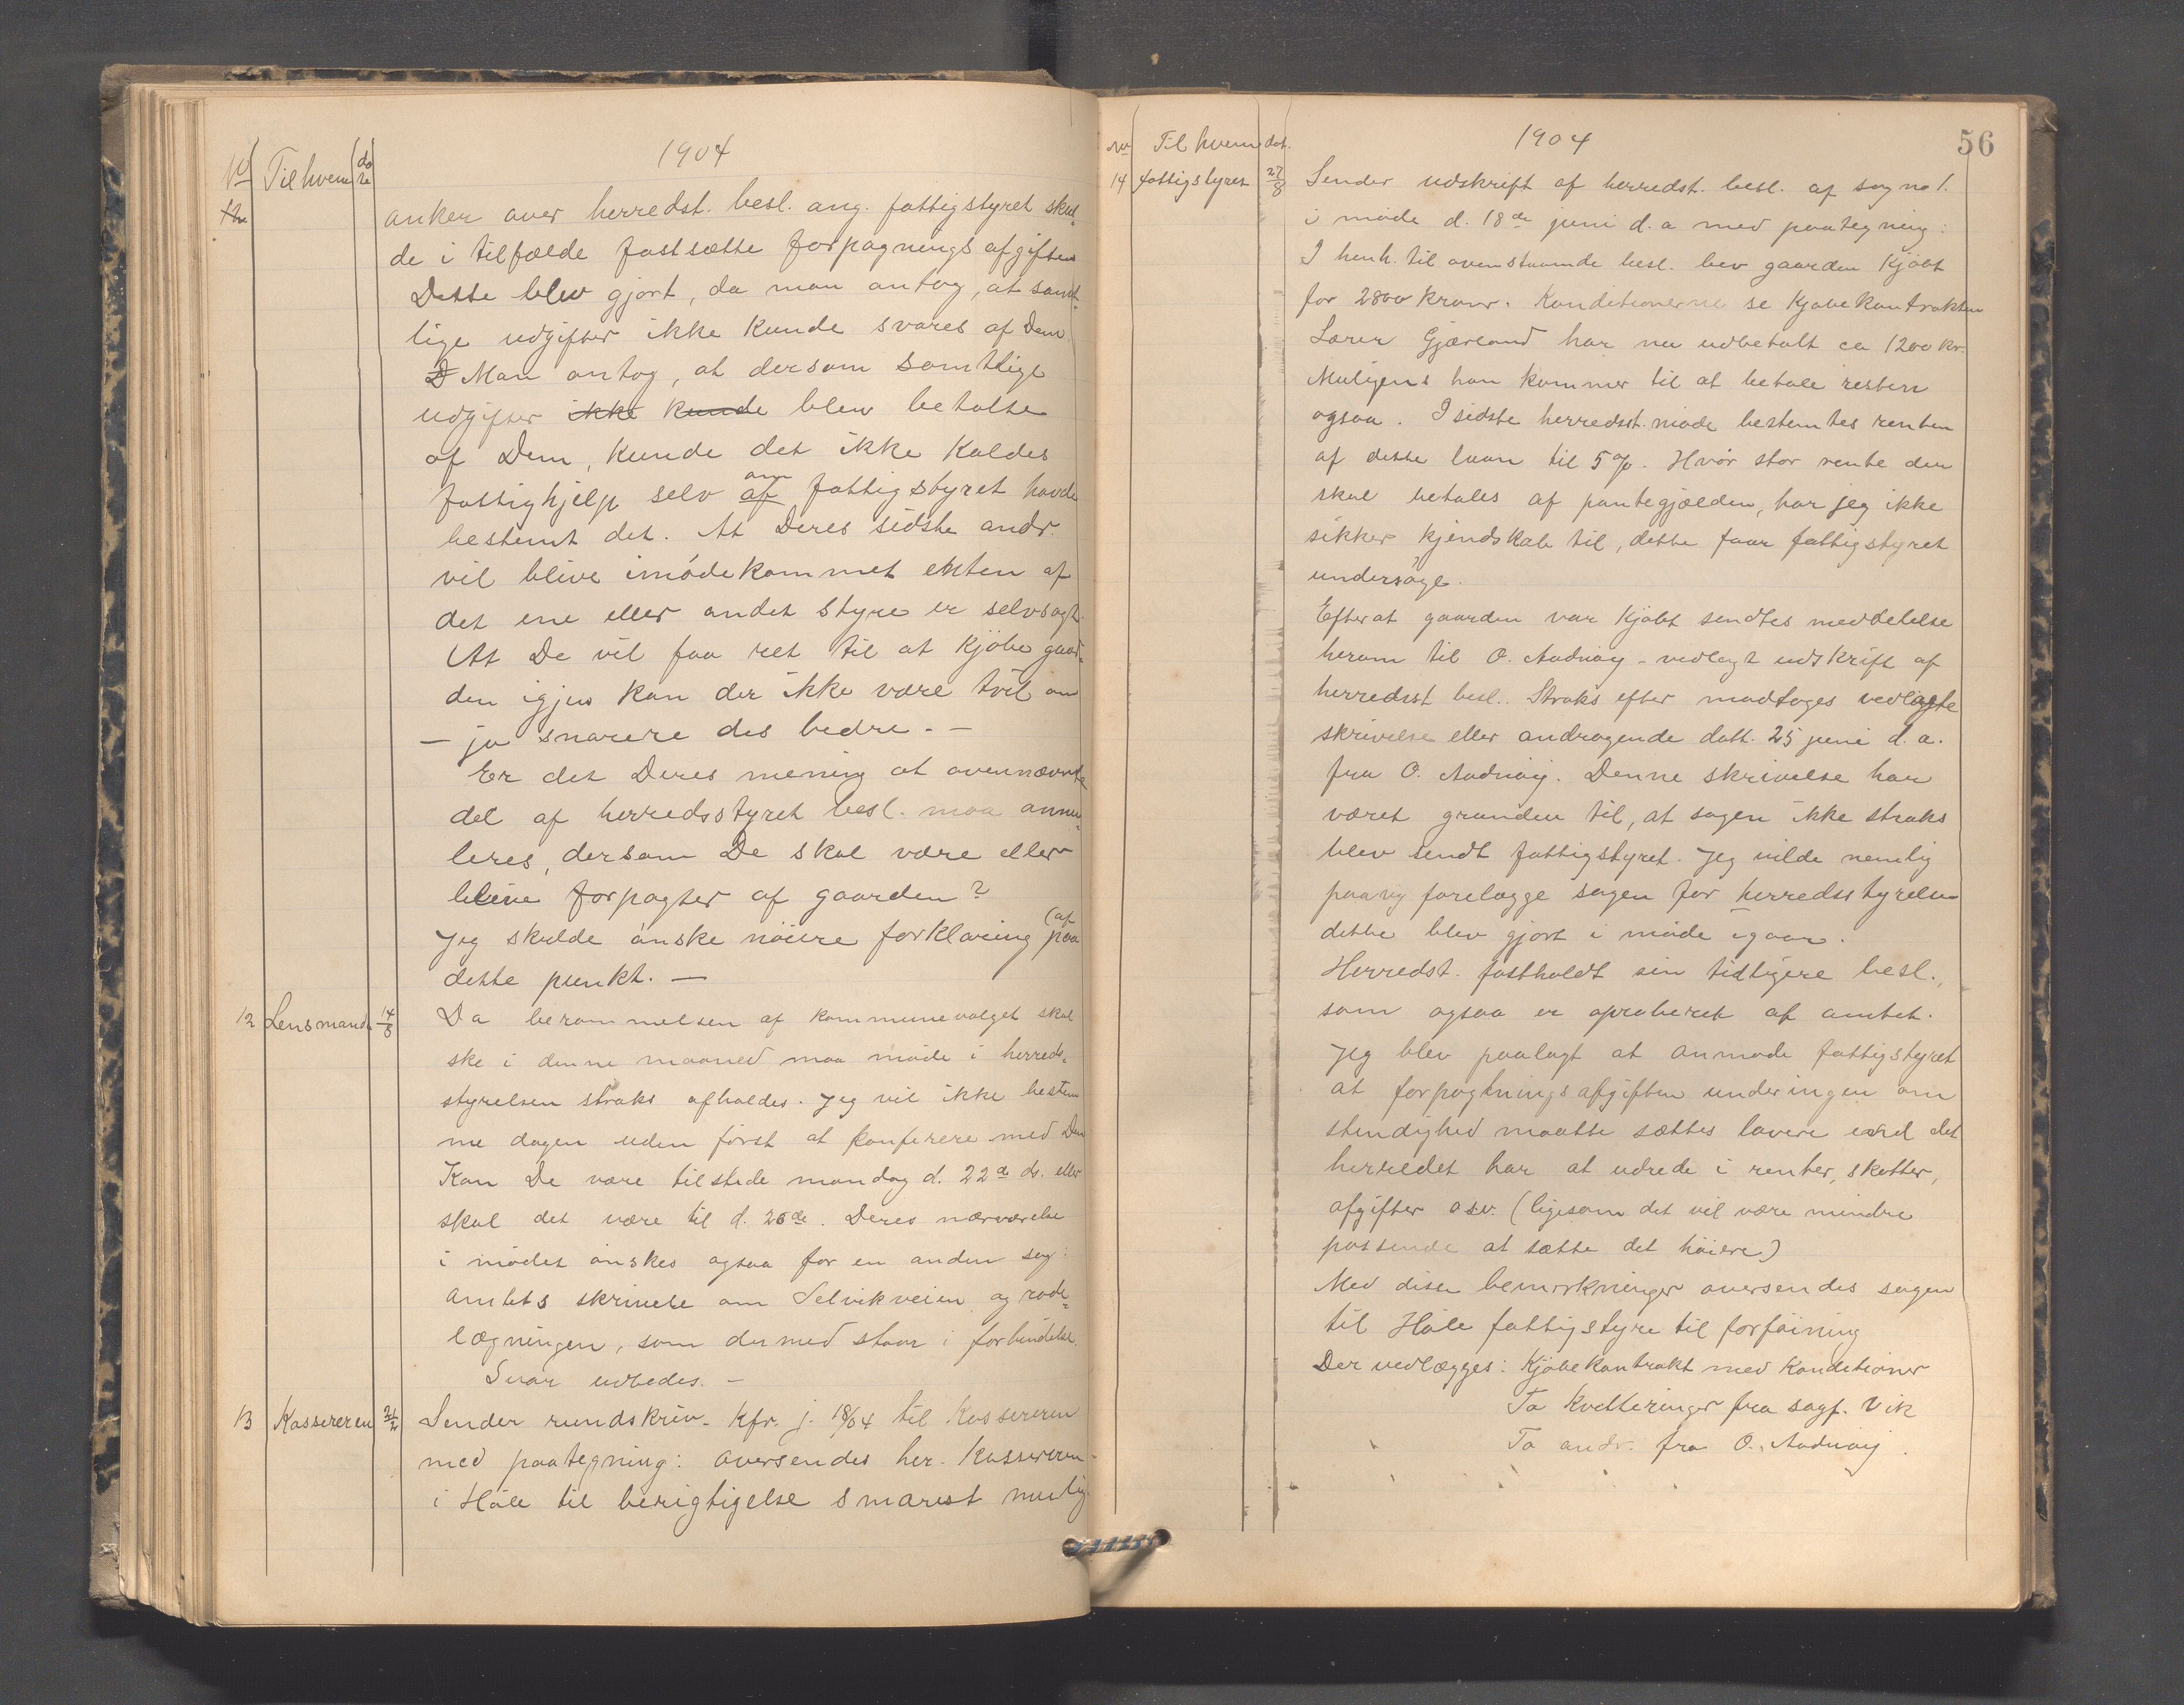 1904
No Til hvem date
anker over herredst. besl. ang. fattigstyret skul-
de i tilfælde fastsætte forpagnings afgiften
Dette blev gjort, da man antog, at samt-
lige udgifter ikke kunde svares af Dem.
D Man antog, at dersom samtlige
udgifter ikke kunde blev betalte
af Dem, kunde det ikke kaldes
fattighjelp selv af om fattigstyret havde
bestemt det. At Deres sidste andr.
vil blive imødekommet enten af
det ene eller andet styre er selvsagt.
At De vil faa ret til at kjøbe gaar-
den igjen kan der ikke være tvil om
– jo snarere des bedre. –
Er det Deres mening at ovennævnte
del af herredsstyret besl. maa annu-
leres, dersom De skal være eller
blive forpagter af gaarden?
Jeg skulde ønske nøiere forklaring (af paa
dette punkt. –
12 Lensmand 14/8 Da berammelsen af kommunevalget skal
ske i denne maaned maa møde i herreds-
styrelsen straks afholdes. Jeg vil ikke bestem
me dagen uden først at konferere med Dem
Kan De være tilstede mandag d. 22de ds. eller
skal det være til d. 26de. Deres nærværelse
i mødet ønskes ogsaa for en anden sag:
Amtets skrivelse om Selvikveien og rode-
lægningen, som dermed staar i forbindelse.
Svar udbedes. –
13 Kassereren Sender rundskriv. kfr. j. 18/04 til Kassereren
med paategning: oversendes her. Kassereren
i Håle til berigtigelse snarest mulig.
56
1904
No Til hvem dat.
14 fattigstyret 27/8 Sender udskrift af herredst. besl. af sag no 1.
i møde d. 18de juni d. a med paategning:
I henh. til ovenstaaende besl. blev gaarden kjøbt
for 2800 kroner. Konditionerne se kjøbekontrakten
Lærer Gjærland har nu udbetalt ca 1200 kr.
Muligens han kommer til at betale resten
ogsaa. I sidste herredsst. møde bestemtes renten
af dette laan til 5%. Hvor stor rente der
skal betales af pantegjælden, har jeg ikke
sikker kjendskab til, dette faar fattigstyret
undersøge.
Efterat gaarden var kjøbt sendtes meddelelse
herom til O. Aadnøy – vedlagt udskrift af
herredsst besl.. Straks efter modtoges vedlagte
skrivelse eller andragende datt. 25 juni d. a.
fra O. Aadnøy. Denne skrivelse har
været grunden til, at sagen ikke straks
blev sendt fattigstyret. Jeg vilde nemlig
paany forelægge sagen for herredsstyrelsen
dette blev gjort i møde igaar.
Herredst. fastholdt sin tidligere besl.,
som ogsaa er aproberet af amtet.
Jeg blev paalagt at anmode fattigstyret
at forpagtningsafgiften under ingen om
stendighed maatte sættes lavere end det
herredet har at udrede i renter, skatter,
afgifter osv. (ligesom det vil være mindre
passende at sætte det høiere)
Med disse bemerkninger oversendes sagen
til Håle fattigstyre til forføining
Der vedlægges: Kjøbekontrakt med konditioner
To kvitteringer fra sagf. Vik
To andr. fra O. Aadnøy.